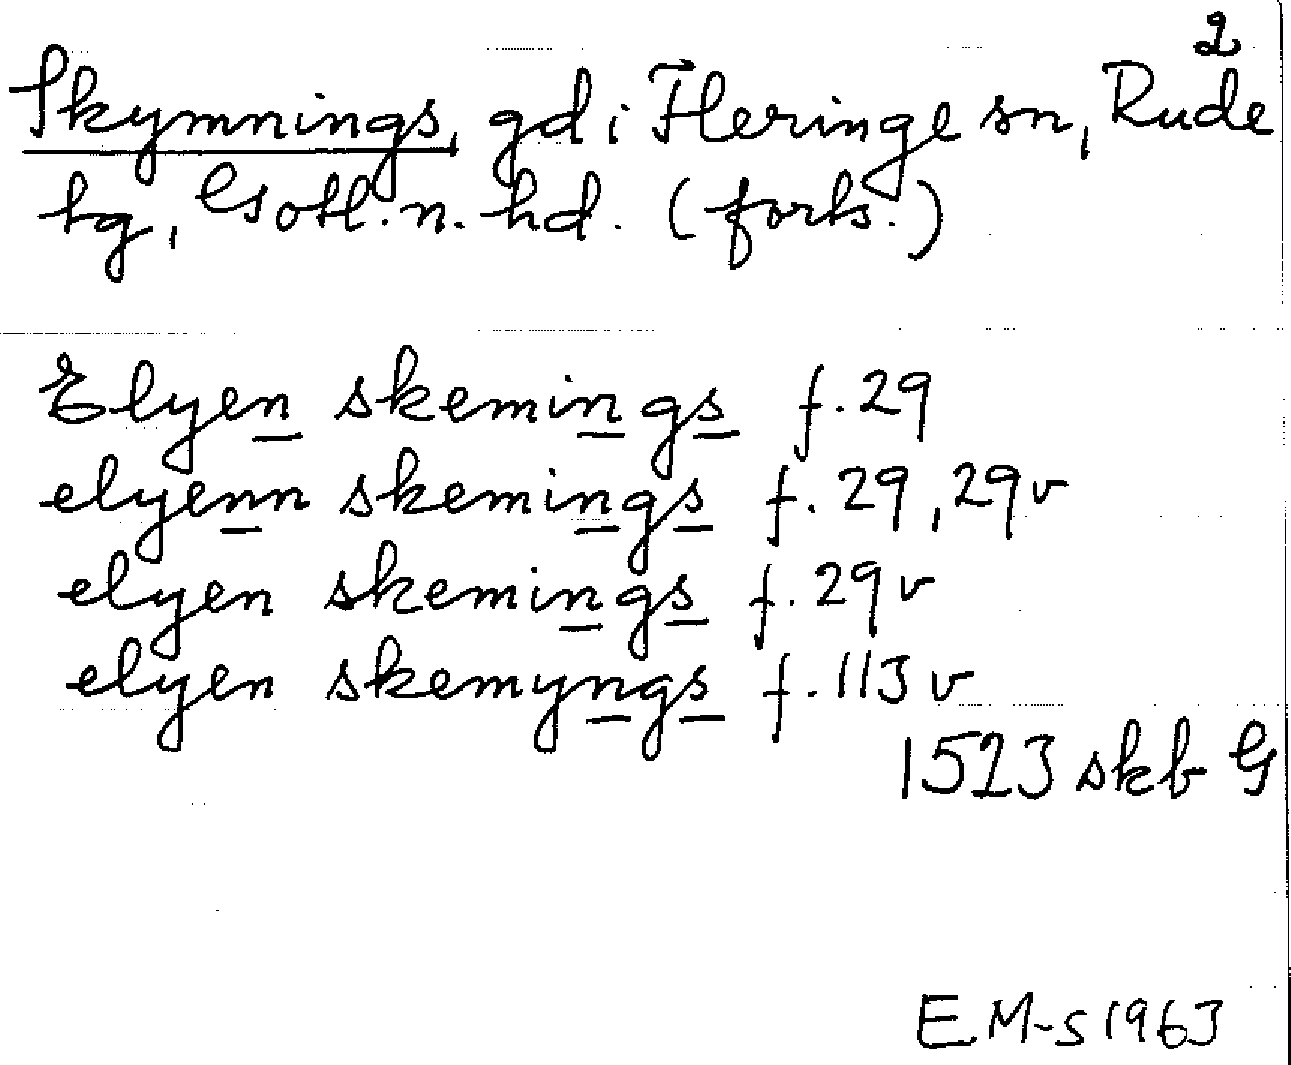 2
Skymnings, gd i Fleringe sn, Rude
tg, Gotl. n. hd. (forts.)
Elyen skemings f. 29
elyenn skemings f. 29, 29v
elyen skemings f. 29v
elyen skemyngs f. 113v
1523 skb G
E.M-s 1963